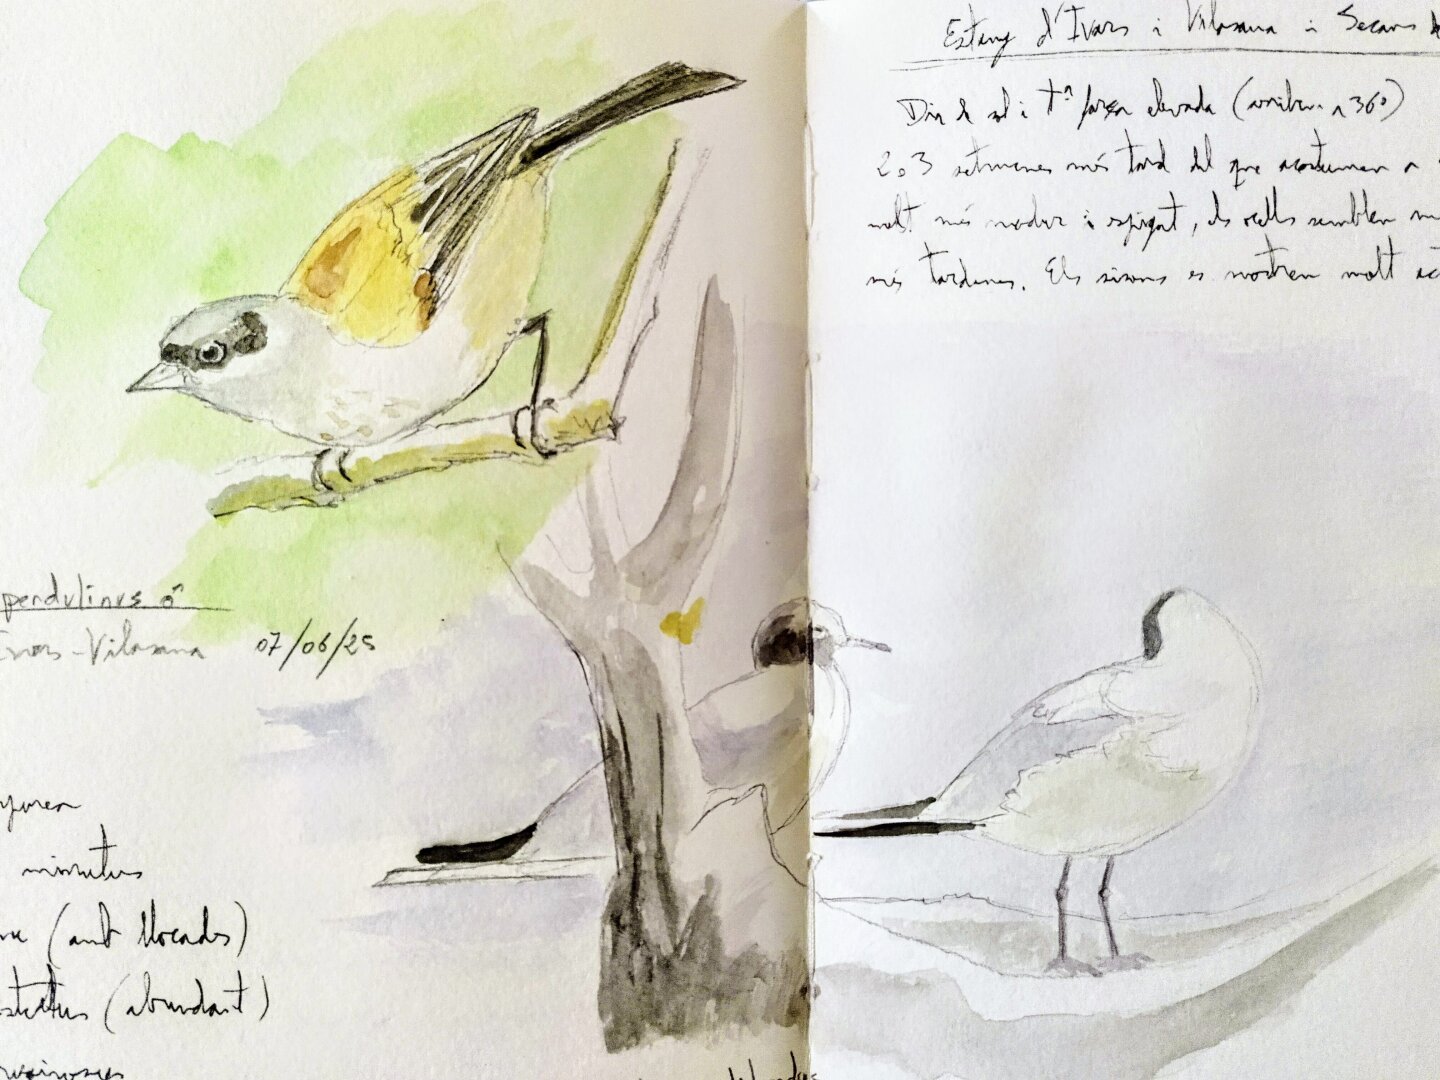 pendulinus ♂
Ivars-Vilasana 07/06/25
minutus
(amb llocades)
(abundant)
Estany d'Ivars i Vilasana i Secans
Dia de sol i tª força elevada (arriben a 36º)
2 o 3 setmanes més tard del que acostumen a
molt més madur i espigat, els ocells semblen
més tardanes. Els sisons es mostren molt